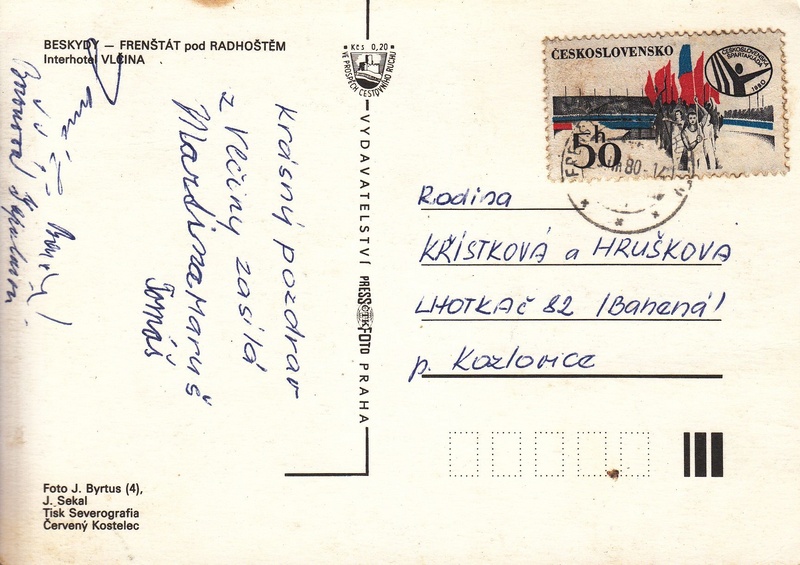 BESKYDY – FRENŠTÁT pod RADHOŠTĚM
Interhotel VLČINA
Kčs 0,20
VE PROSPĚCH CESTOVNÍHO RUCHU
krásný pozdrav
z Vlčiny zasílá
Martina Maruš
Tomáš
VYDAVATELSTVÍ PRESSFOTO PRAHA
ČTK
ČESKOSLOVENSKO
ČESKOSLOVENSKÁ SPARTAKIÁDA 1980
50 h
80-14
Rodina
KŘÍSTKOVÁ a HRUŠKOVA
LHOTKA č 82 /Bahená/
p. Kozlovice
Foto J. Byrtus (4),
J. Sekal
Tisk Severografia
Červený Kostelec